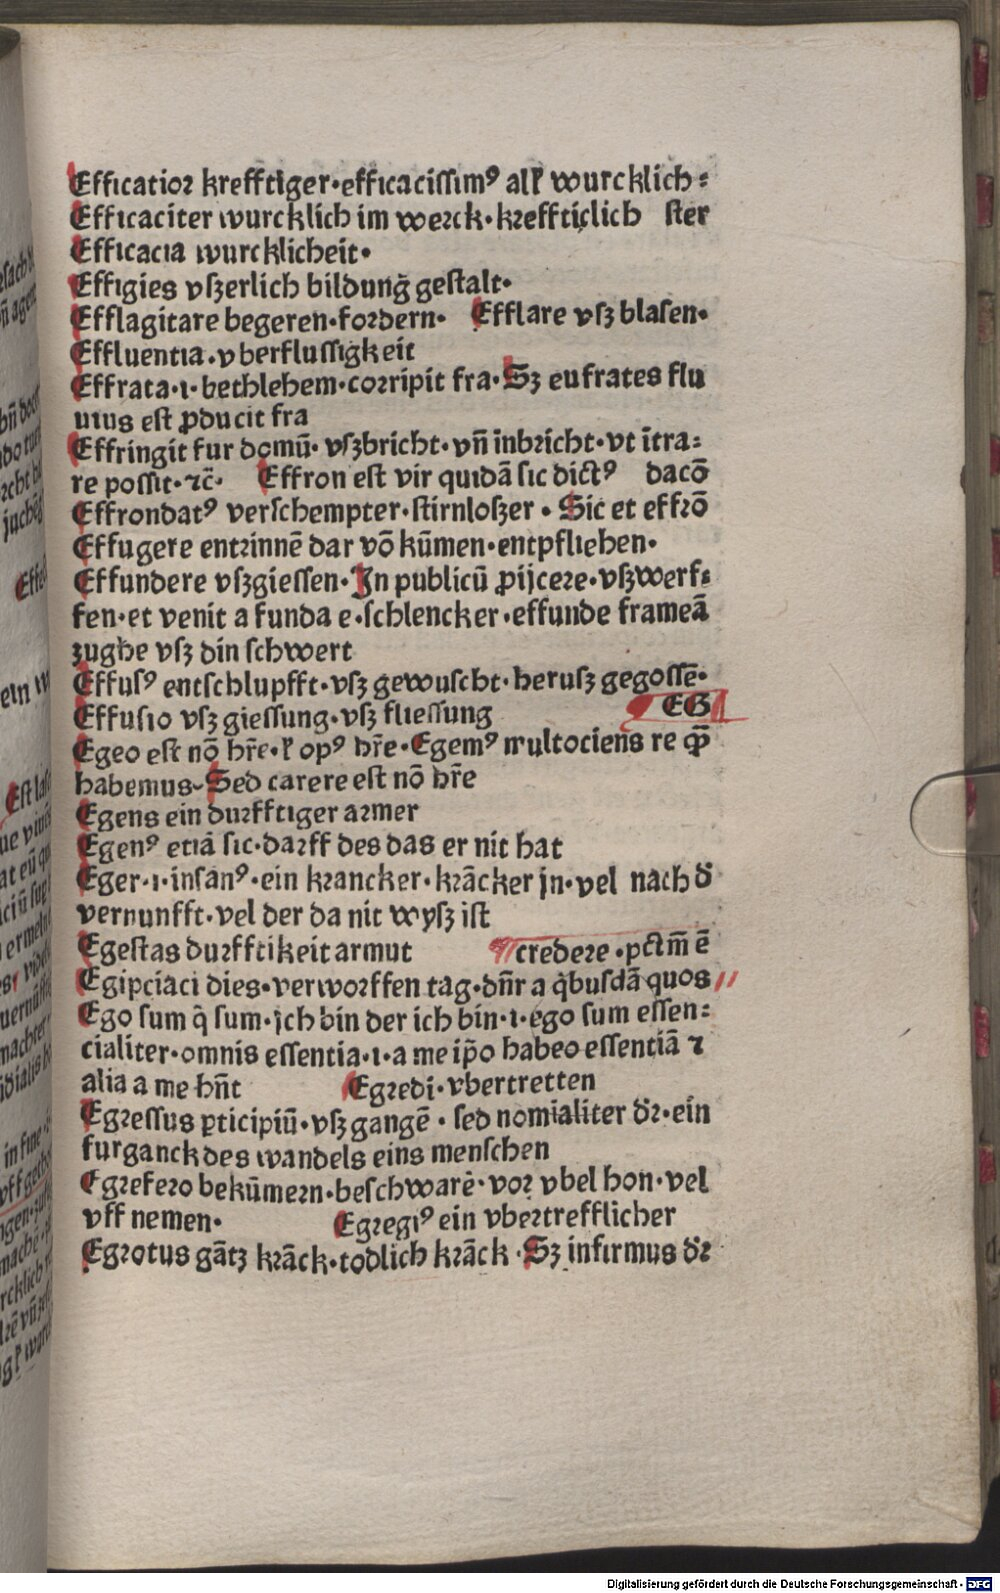 Efficatior krefftiger·efficacissimꝰ alꝉ wurcklich⸗
Efficaciter wurcklich im werck·kreffticlich ſter
Efficacia wurcklicheit·
Effigies vſzerlich bildung geſtalt·
Efflagitare begeren·fordern· Efflare vſz blaſen·
Effluentia·vberfluſſigkeit
Effrata·i·bethlehem·corripit fra·Sꝫ eufrates flu
uius eſt ꝓducit fra
Effringit fur domū·vſzbricht·vn̄ inbricht·vt ītra⸗
re poſſit·ꝛc̄· Effron eſt vir quidā ſic dictꝰ dacō
Effrondatꝰ verſchempter·ſtirnloſzer·Sic et effrō
Effugere entrinnē dar vō kūmen·entpfliehen·
Effundere vſzgieſſen·In publicū ꝓijcere·vſzwerf⸗
fen·et venit a funda e·ſchlencker·effunde frameā
zughe vſz din ſchwert
Effuſꝰ entſchlupfft·vſz gewuſcht·heruſz gegoſſē·
Effuſio vſz gieſſung·vſz flieſſung EG
Egeo eſt nō hr̄e·ꝉ opꝰ hr̄e·Egemꝰ multociens re qͣꝫ
habemus·Sed carere eſt nō hr̄e
Egens ein durfftiger armer
Egenꝰ etiā ſic·darff des das er nit hat
Eger·i·inſanꝰ·ein krancker·krācker jn·vel nach d̓
vernunfft·vel der da nit wyſz iſt
Egeſtas durfftikeit armut credere·pctm̄ ē
Egipciaci dies·verworffen tag·dn̄r a q̇buſdā quos
Ego ſum q̇ ſum·jch bin der ich bin·i·ego ſum eſſen⸗
cialiter·omnis eſſentia·i·a me ip̄o habeo eſſentiā ⁊
alia a me hn̄t Egredi·vbertretten
Egreſſus ꝑticipiū·vſz gangē·ſed nomialiter dr̄·ein
furganck des wandels eins menſchen
Egrefero bekūmern·beſchwarē·vor vbel hon·vel
vff nemen· Egregiꝰ ein vbertrefflicher
Egrotus gātz krāck·todlich krāck·Sꝫ infirmus dr̄
Digitalisierung gefördert durch die Deutsche Forschungsgemeinschaft · DFG